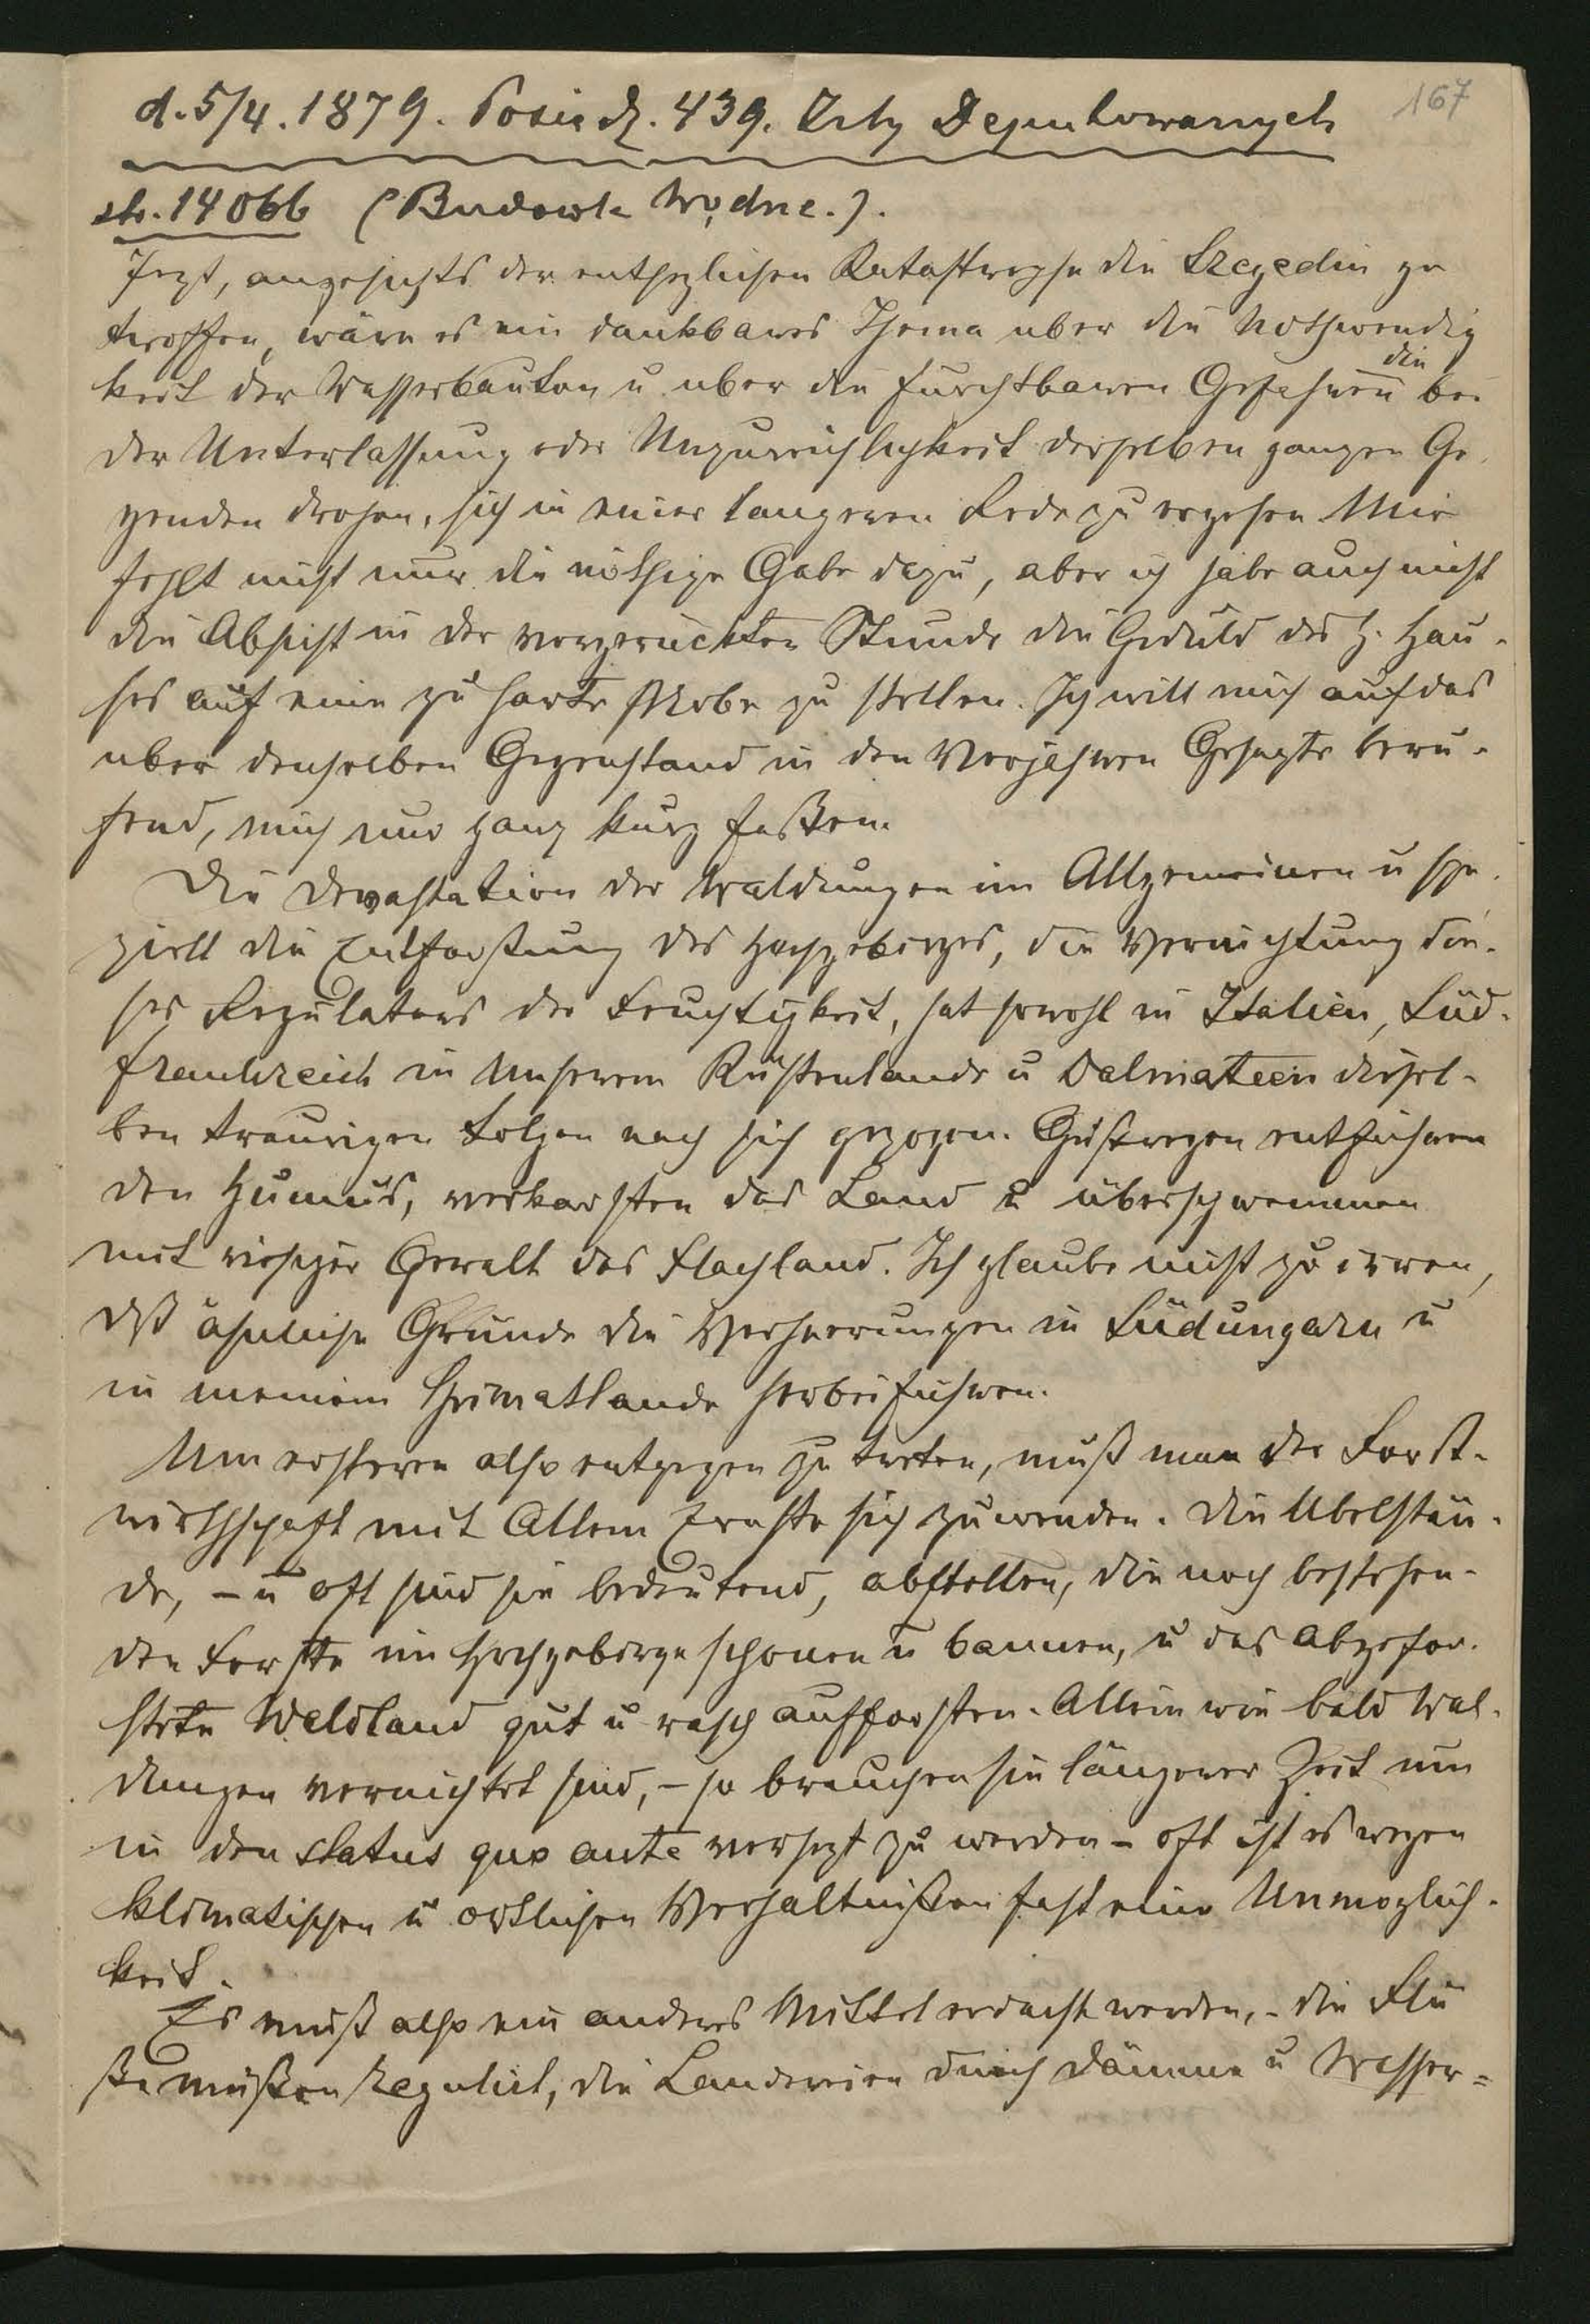 167
d. 5/4. 1879. Posiedz. 439. Izby Deputowanych
str. 14066 (Budowle wodne.).
Jezt, angesichts der entsezlichen Katastrophe die Szegedin ge
troffen, wäre es ein dankbares Thema uber die Nothwendig
keit der Wasserbauten u uber die furchtbaren Gefahren die bei
der Unterlassung oder Unzureichlichkeit derselben ganzen Ge-
genden drohen, sich in einer langeren Rede zu ergehen Mir
fehlt nicht nur die nöthige Gabe dazu, aber ich habe auch nicht
die Absicht in der vorgeruckten Stunde die Geduld des h. Hau-
ses auf eine zu harte Probe zu stellen. Ich will mich auf das
uber denselben Gegenstand in den Vorjahren Gesagte beru-
fend, mich nur ganz kurz faßen.
Die Devastation der Waldungen im Allgemeinen u spe-
ziell die Entforstung des Hochgebirges, die Vernichtung die-
ses Regulators der Feuchtigkeit, hat sowohl in Italien, Süd-
frankreich in Unserem Küstenlande u Dalmatien diesel-
ben traurigen Folgen nach sich gezogen. Gußregen entfuhren
den Humus, verkarsten das Land u überschwemmen
mit riesiger Gewalt das Flachland. Ich glaube nicht zu irren,
dß ähnliche Grunde die Verheerungen in Südungarn u
in meinem Heimatlande herbeifuhren.
Um ersteren also entgegen zu treten, muß man der Forst-
wirthschaft mit Allem Ernste sich zuwenden. Die Ubelstän-
de, – u oft sind sie bedeutend, abstellen, die noch bestehen-
den Forste im Hochgebirge schonen u bannen, u das abgefor-
stete Waldland gut u rasch aufforsten. Allein wie bald Wal-
dungen vernichtet sind, – so brauchen sie längerer Zeit um
in den status quo ante versezt zu werden – oft ist es wegen
klimatischen u ortlichen Verhaltnißen fast eine Unmoglich-
keit.
Es muß also ein anderes Mittel erdacht werden, – die Flü
ße müßen regulirt, die Landereien durch Dämme u Wasser=